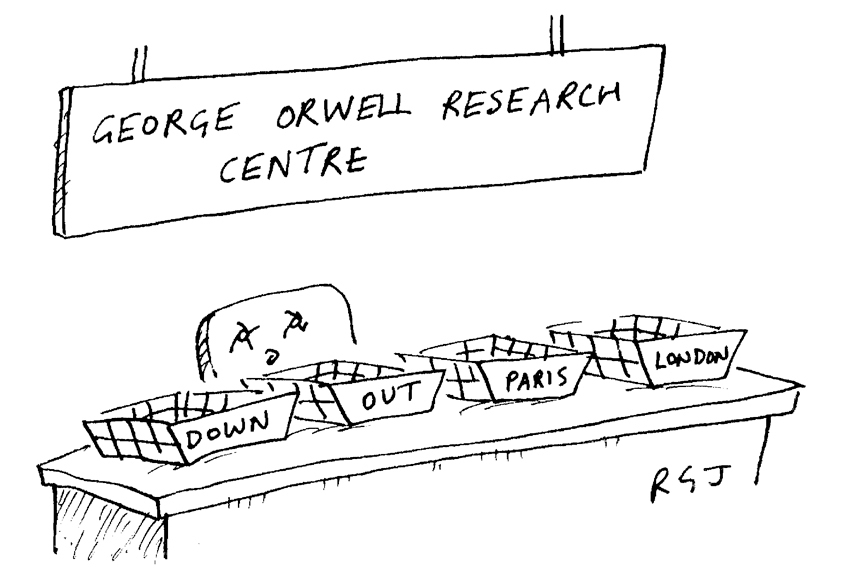 GEORGE ORWELL RESEARCH
CENTRE
DOWN
OUT
PARIS
LONDON
RGJ